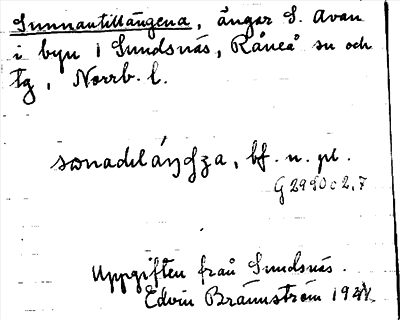 Sunnantillängena, ängar S. Avan
i byn 1 Sundsnäs, Råneå sn och
tg, Norrb. l.
sonadɩláŋʤza, bf. n. pl.
G 2990 c 2,7
Uppgiften från Sundsnäs.
Edvin Brännström 19